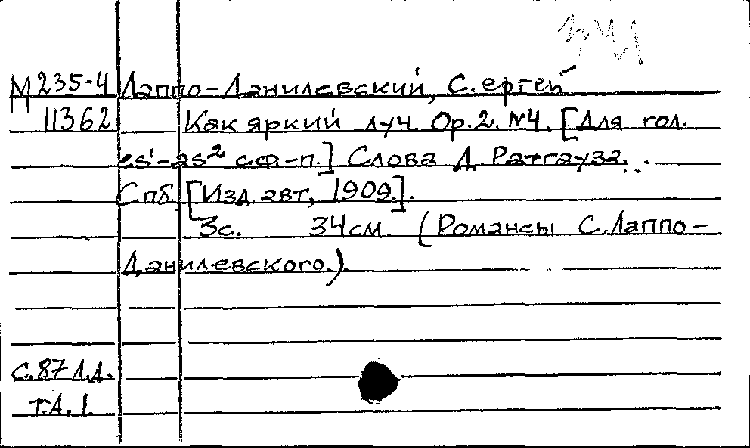 М 235-4 Лаппо-Данилевский, С.ергей
11362 Как яркий луч. Op.2. №4. [Для гол.
es¹-as² с ф-п.] Слова Д. Ратгауза.
Спб. [Изд. авт, 1909].
3с. 34см. (Романсы С.Лаппо-
Данилевского.).
С.87 Л.Д.
Т.Д. 1.